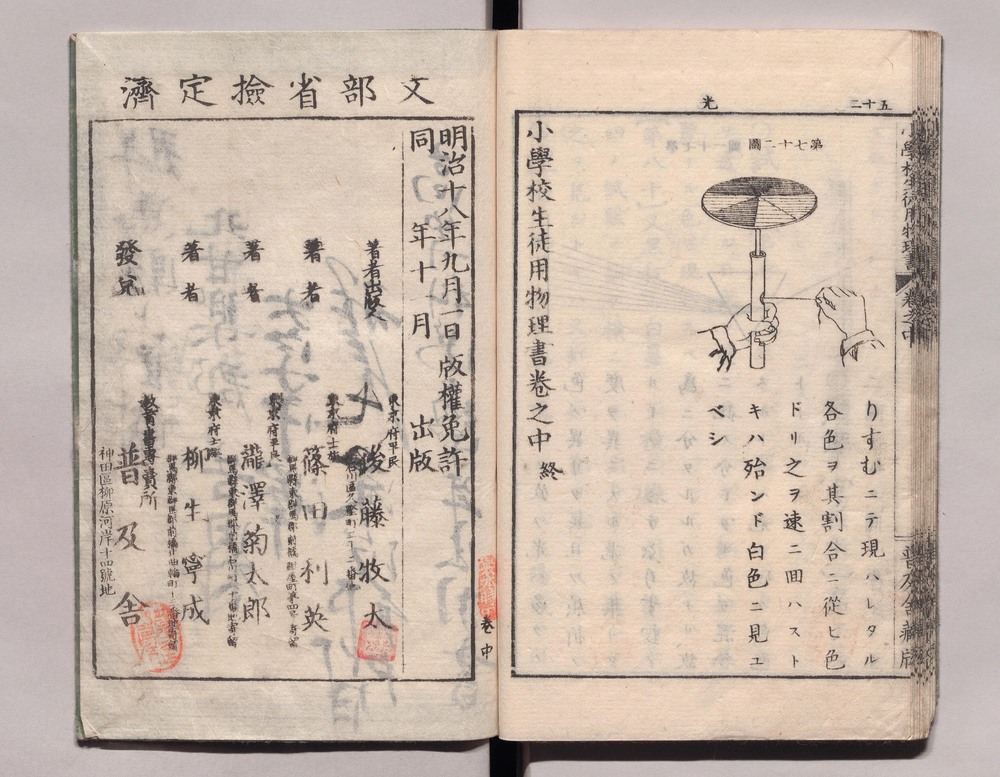 五十二
光
第七十二圖
りすむニテ現ハレタル
各色ヲ其割合ニ從ヒ色
ドリ之ヲ速ニ回ハスト
キハ殆ンド白色ニ見ユ
ベシ
小學校生徒用物理書卷之中 終
普及舍藏版
卷中
文部省檢定濟
明治十八年九月一日版權免許
同年十一月出版
著者出版人
東京府平民
後藤牧太
著者
東京府士族
篠田利英
著者
瀧澤菊太郎
著者
東京府士族
柳生寧成
發兌
教育書專賣所
普及舍
神田區柳原河岸十四號地